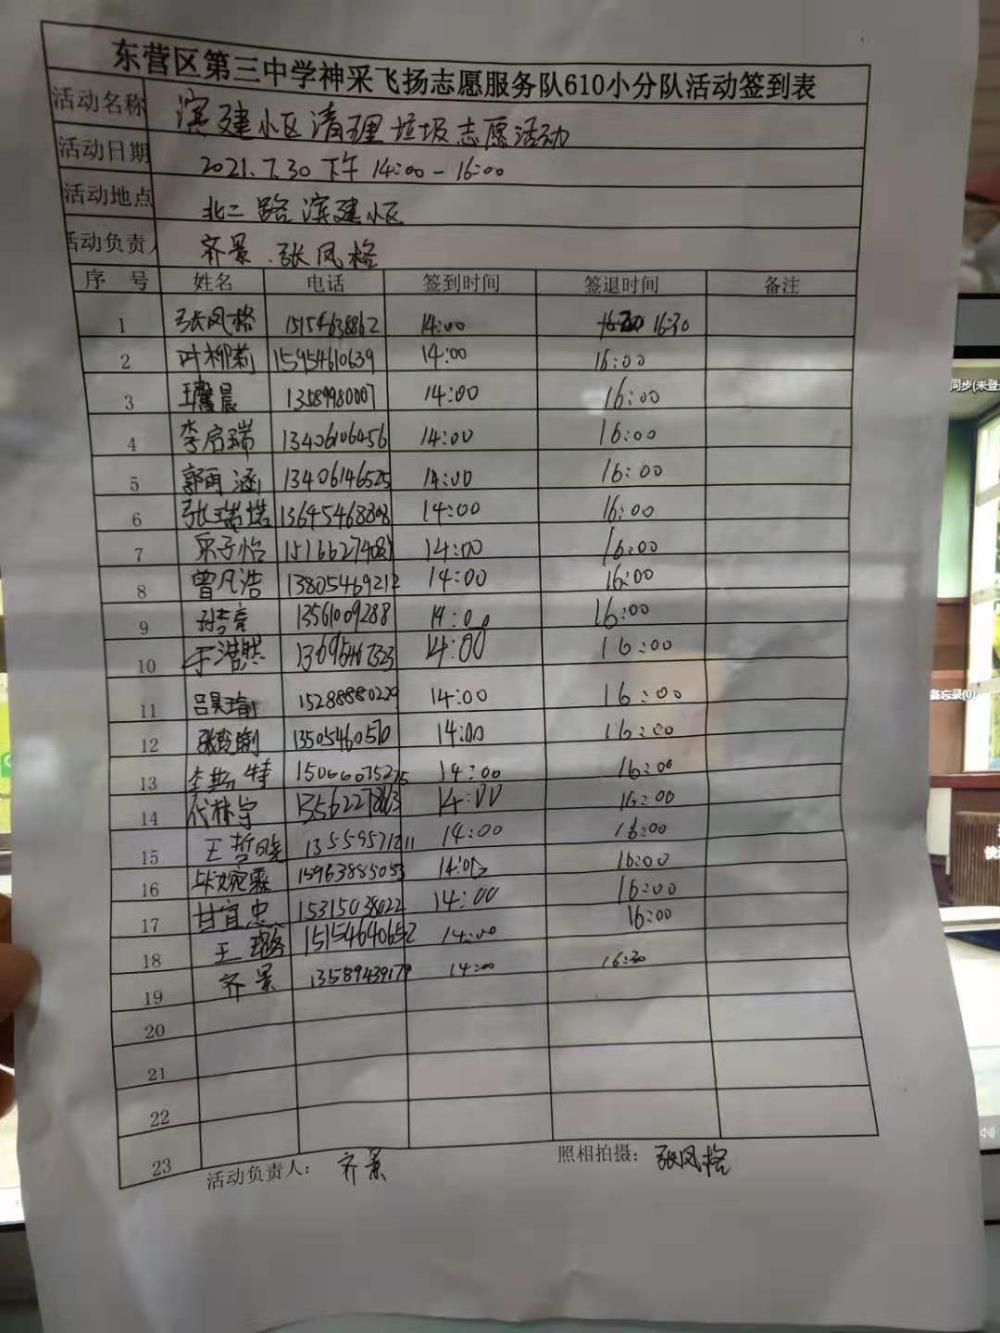 东营区第三中学神采飞扬志愿服务队610小分队活动签到表
活动名称 滨建小区清理垃圾志愿活动
活动日期 2021.7.30 下午 14:00-16:00
活动地点 北二路滨建小区
活动负责人 齐景 张凤格
序号 姓名 电话 签到时间 签退时间 备注
1 张凤格 15154638862 14:00 16:30
2 叶柳莉 15954610639 14:00 16:00
3 晨 13589980007 14:00 16:00
4 李启瑞 13406106456 14:00 16:00
5 郭雨涵 13406146525 14:00 16:00
6 张瑞 13645468808 14:00 16:00
7 子怡 14:00 16:00
8 曾凡浩 13805469212 14:00 16:00
9 13561009288 14:00 16:00
10 于浩然 14:00 16:00
11 吕昊瑜 15288880229 14:00 16:00
12 13505460510 14:00 16:00
13 李 特 14:00 16:00
14 代林宇 14:00 16:00
15 王哲晓 14:00 16:00
16 15963885053 14:00 16:00
17 甘宜忠 15315038022 14:00 16:00
18 王璐 15154640652 14:00 16:00
19 齐景 14:00 16:30
20
21
22
23
活动负责人: 齐景 照相拍摄: 张凤格
同步(未登
备忘录(0)